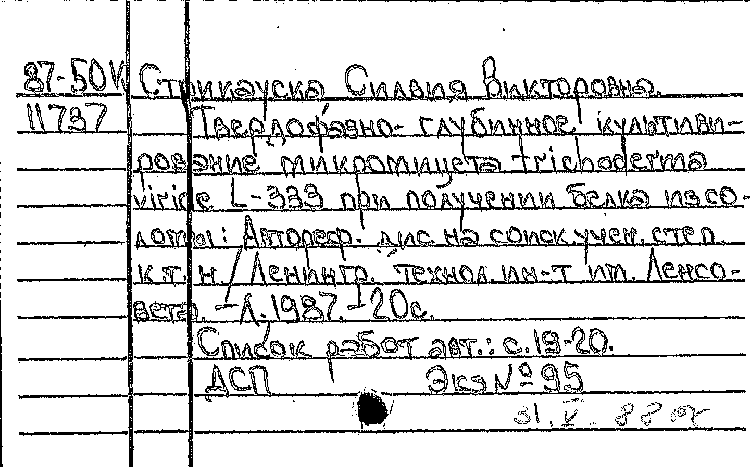 87-50к Стрикауска Силвия Викторовна.
11737 Твердофазно-глубинное культиви-
рование микромицета trichoderma
viride L-333 при получении белка из со-
ломы: Автореф. дис. на соиск. учен. степ.
к.т.н. / Ленингр. технол. ин-т им. Ленсо-
вета. - Л., 1987. - 20с.
Список работ авт.: с.19-20.
ДСП Экз № 95
31.V.88